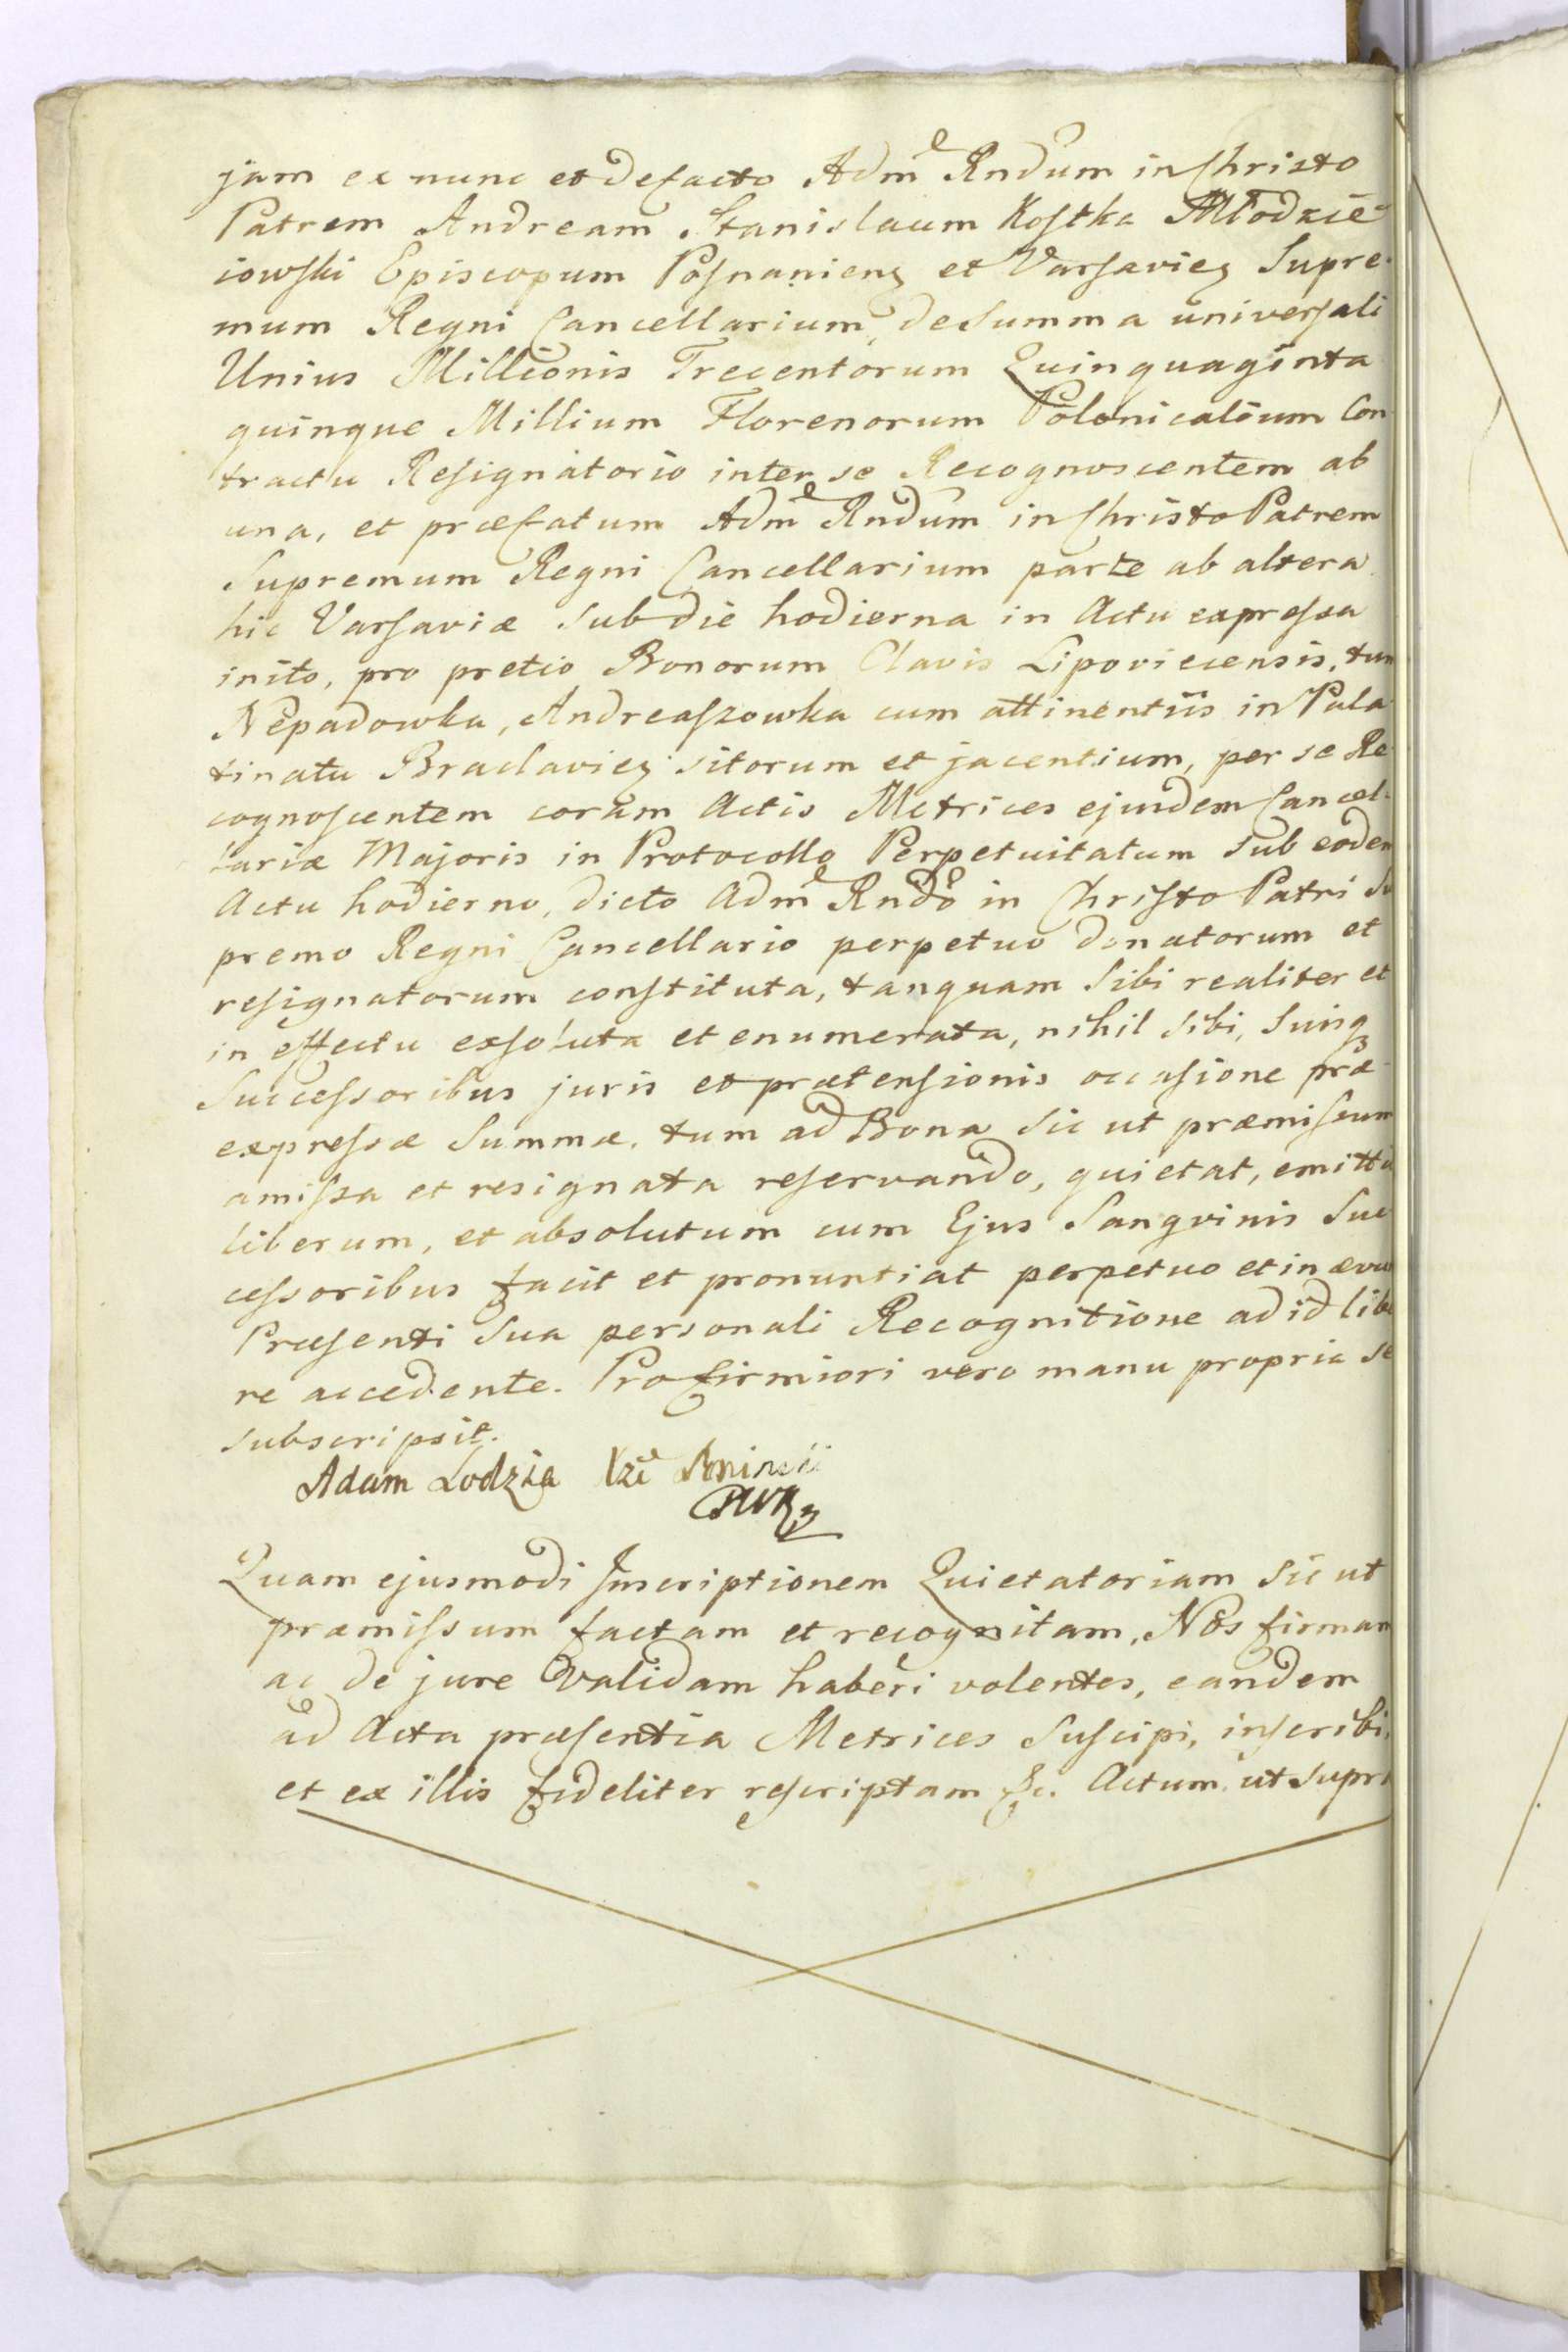 jam ex nunc et de facto Adm̃ Rndum in Christo
Patrem Andream Stanislaum Kostka Młodzie-
iowski Episcopum Posnanienȝ et Varsavieȝ Supre-
mum Regni Cancellarium, de Summa universali
Unius Millionis Trecentorum Quinquaginta
quinque Millium Florenorum Polonicalium Con
tractu Resignatorio inter se Recognoscentem ab
una, et præfatum Adm̃ Rndum in Christo Patrem
Supremum Regni Cancellarium parte ab altera
hic Varsaviæ sub die hodierna in Actu expressa
inito, pro pretio Bonorum Clavis Lipoviecensis, tum
Nepadowka, Andreaszowka cum attinentiis in Pala
tinatu Braclavieȝ sitorum et jacentium, per se Re
cognoscentem coram Actis Metrices ejusdem Cancel-
lariæ Majoris in Protocollo Perpetuitatum sub eodem
Actu hodierno, dicto Adm̃ Rndo in Christo Patri Su
premo Regni Cancellario perpetuo donatorum et
resignatorum constituta, tanquam sibi realiter et
in effectu exsoluta et enumerata, nihil sibi, suisqȝ
Successoribus juris et prætensionis occasione præ-
expressæ Summæ, tum ad Bona sic ut præmissum
amissa et resignata reservando, quietat, emittit
liberum, et absolutum cum Ejus Sangvinis Suc
cessoribus facit et pronuntiat perpetuo et in ævum
Præsenti sua personali Recognitione ad id libe
re accedente. Pro firmiori vero manu propria se
subscripsit.
Adam Lodzia
Quam ejusmodi Inscriptionem Quietatoriam sic ut
præmissum factam et recognitam, Nos firmam
ac de jure validam haberi volentes, eandem
ad Acta præsentia Metrices suscipi, inscribi,
et ex illis fideliter rescriptam &c. Actum ut supra